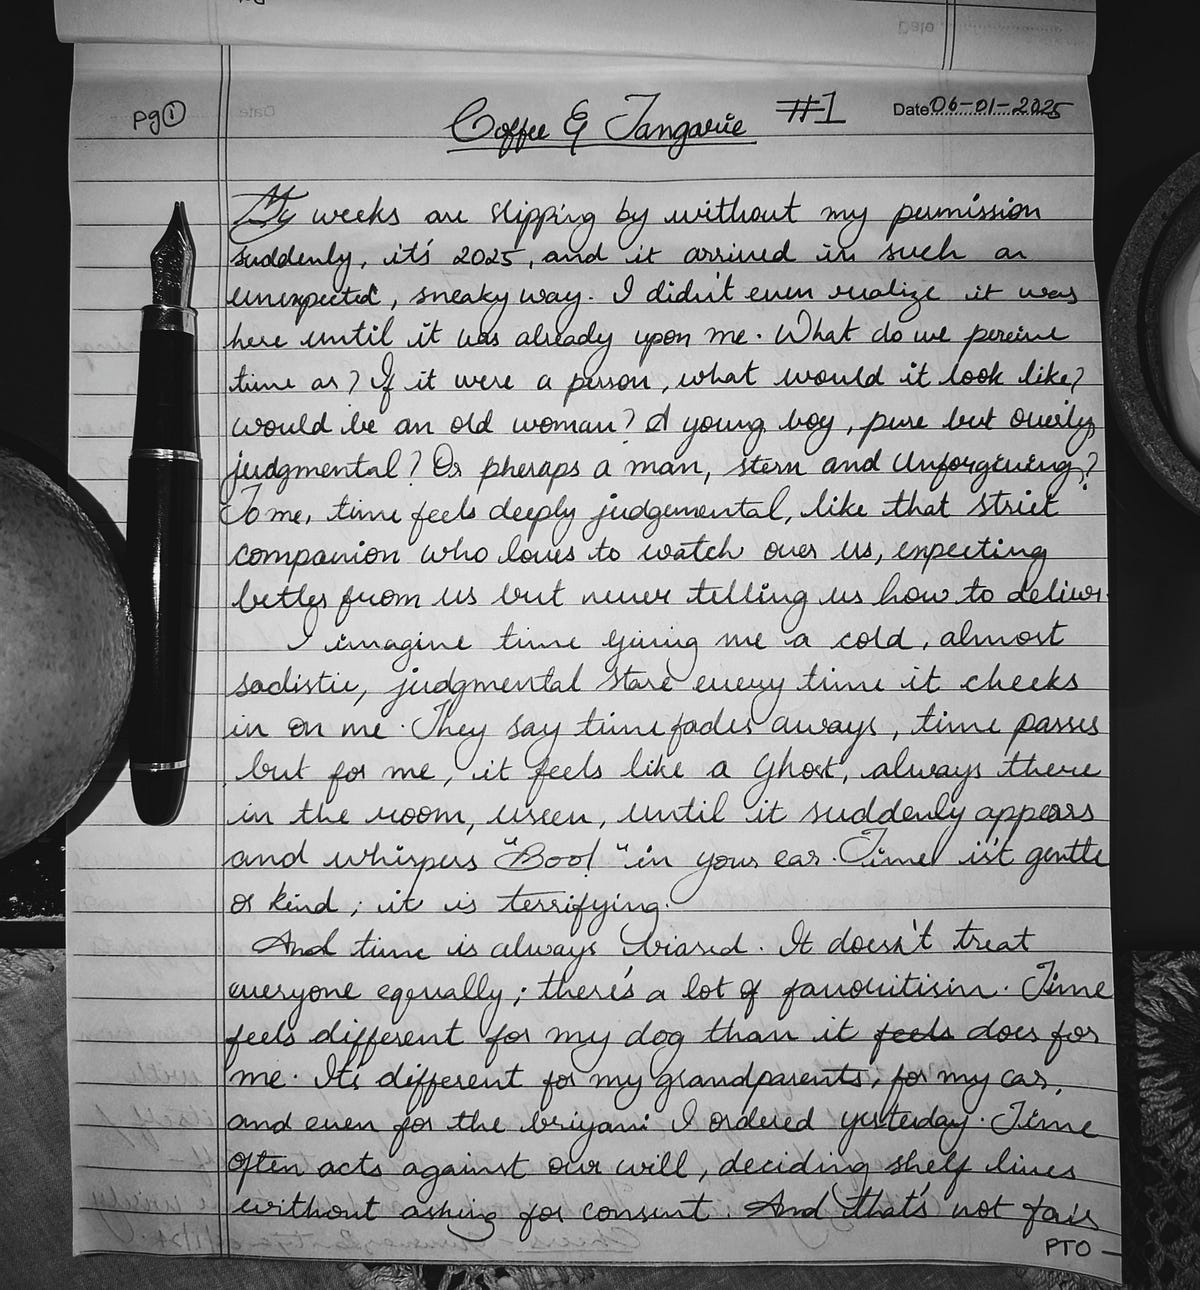 pg 1
Coffee & Tangarie #1
Date 06-01-2025
My weeks are slipping by without my permission
suddenly, it's 2025, and it arrived in such an
unexpected, sneaky way. I didn't even realize it was
here until it was already upon me. What do we perceive
time as? If it were a person, what would it look like?
would be an old woman? A young boy, pure but overly
judgmental? Or pheraps a man, stern and Unforgiving?
To me, time feels deeply judgemental, like that strict
companion who loves to watch over us, expecting
better from us but never telling us how to deliver.
I imagine time giving me a cold, almost
sadistic, judgmental stare every time it checks
in on me. They say time fades aways, time passes
but for me, it feels like a Ghost, always there
in the room, useen, until it suddenly appears
and whispers "Boo! "in your ear. Time is't gentle
or kind; it is terrifying.
And time is always biased. It doesn't treat
everyone equally; there's a lot of favouitisim. Time
feels different for my dog than it feels does for
me. It's different for my grandparents, for my car,
and even for the briyani I ordered yesterday. Time
often acts against our will, deciding shelf lives
without asking for consent. And that's not fair
PTO